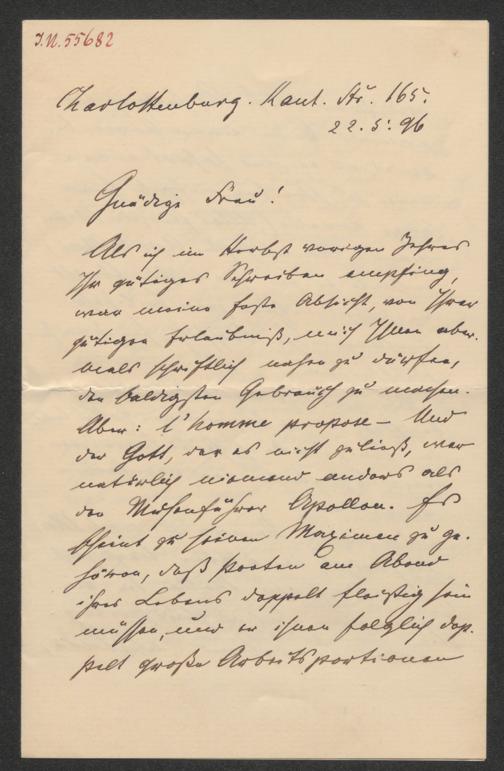 J.N. 55682
Charlottenburg. Kant. Str. 165.
22. 5. 96
Gnädige Frau!
Als ich im Herbst vorigen Jahres
Ihr gütiges Schreiben empfing,
war meine feste Absicht, von Ihrer
gütigen Erlaubniß, mich Ihnen aber-
mals schriftlich nahen zu dürfen,
den baldigsten Gebrauch zu machen.
Aber: l'homme propose – Und
der Gott, der es nicht zuließ, war
natürlich niemand anders als
der Musenführer Apollon. Es
scheint zu seinen Maximen zu ge-
hören, daß Poeten am Abend
ihres Lebens doppelt fleißig sein
müssen, und er ihnen folglich dop-
pelt große Arbeitsportionen